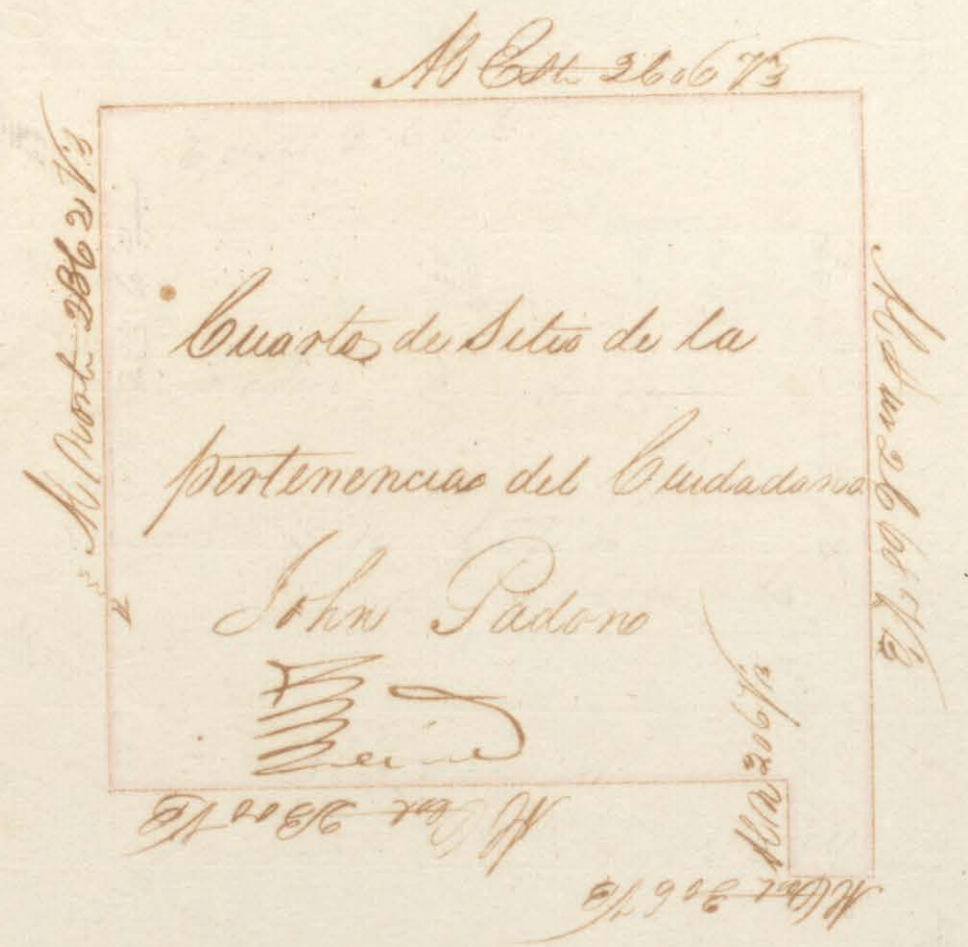 Al Este 2606 Vs
Al Norte 2362 Vs
Cuarto de Sitio de la
pertenencia del Ciudadano
John Padono
Al Sur 2606 Vs
Al N 206 Vs
Al Oest 2300 Vs
Al Oest 306 Vs